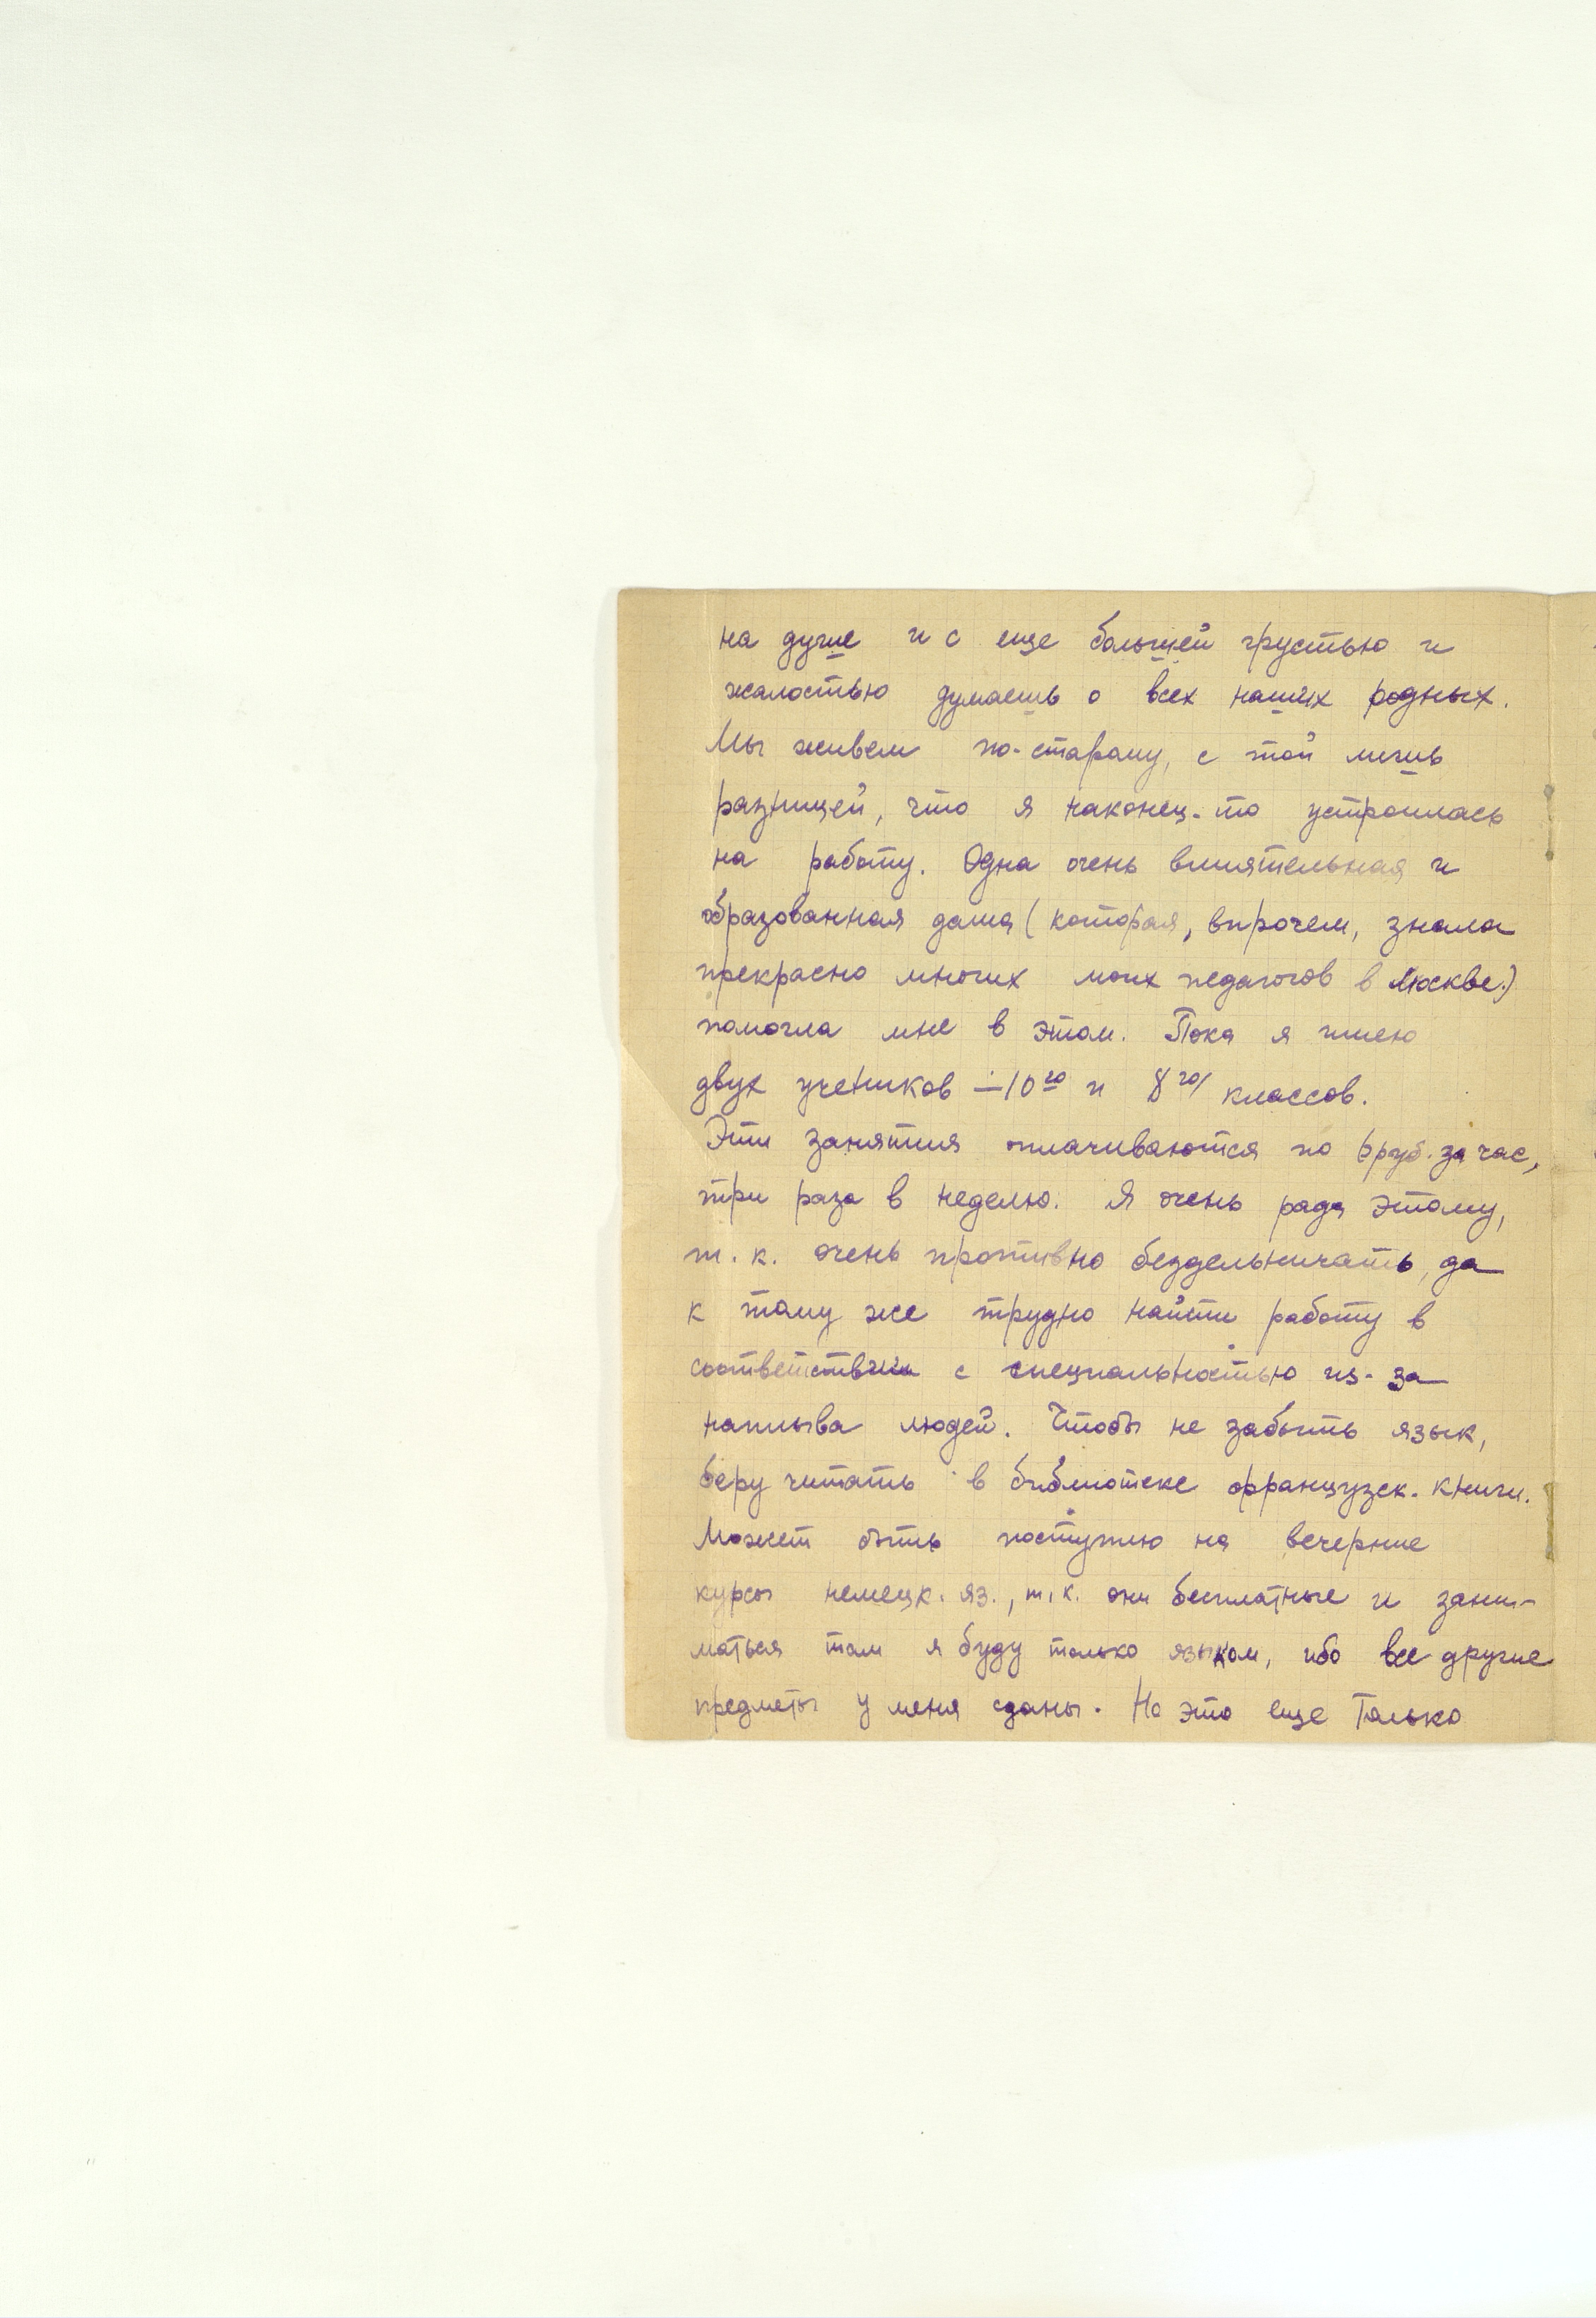 на душе и с еще большей грустью и
жалостью думаешь о всех наших родных.
Мы живем по-старому, с той лишь
разницей, что я наконец-то устроилась
на работу. Одна очень влиятельная и
образованная дама (которая, впрочем, знала
прекрасно многих моих педагогов в Москве.)
помогла мне в этом. Пока я имею
двух учеников – 10го и 8го классов.
Эти занятия оплачиваются по руб. за час,
три раза в неделю. Я очень рада этому,
т. к. очень противно бездельничать, да
к тому же трудно найти работу в
соответствии с специальностью из-за
наплыва людей. Чтобы не забыть язык,
беру читать в библиотеке французск. книги.
Может быть поступлю на вечерние
курсы немецк. яз., т. к. они бесплатные и зани-
маться там я буду только языком, ибо все другие
предметы у меня сданы. Но это еще только